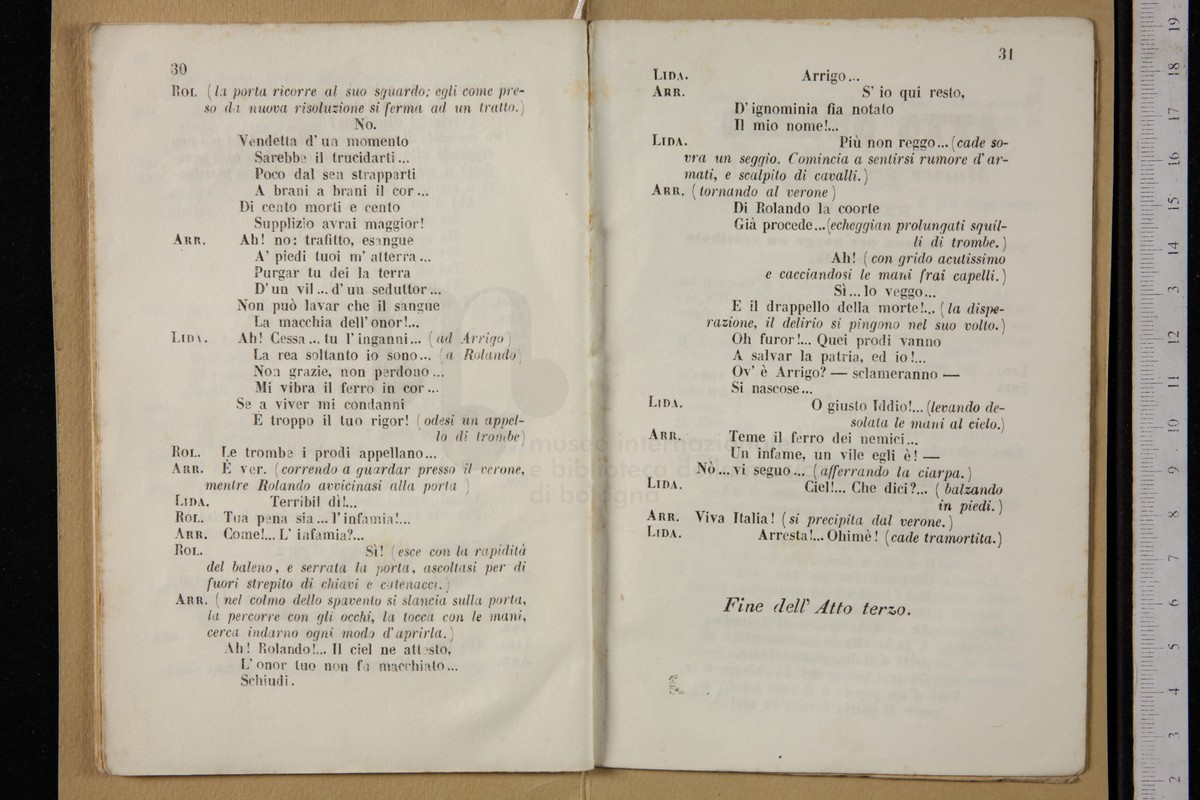 30
ROL. (la porta ricorre al suo sguardo; egli come pre-
so da nuova risoluzione si ferma ad un tratto.)
No.
Vendetta d' un momento
Sarebbe il trucidarti...
Poco dal sen strapparti
A brani a brani il cor...
Di cento morti e cento
Supplizio avrai maggior!
ARR. Ah! no: trafitto, esangue
A' piedi tuoi m' atterra...
Purgar tu dei la terra
D' un vil... d' un seduttor...
Non può lavar che il sangue
La macchia dell' onor!...
LIDA. Ah! Cessa... tu l' inganni... (ad Arrigo)
La rea soltanto io sono... (a Rolando)
Non grazie, non perdono...
Mi vibra il ferro in cor...
Se a viver mi condanni
E troppo il tuo rigor! (odesi un appel-
lo di trombe)
ROL. Le trombe i prodi appellano...
ARR. È ver. (correndo a guardar presso il verone,
mentre Rolando avvicinasi alla porta)
LIDA. Terribil dì!...
ROL. Tua pena sia... l' infamia!...
ARR. Come!... L' infamia?...
ROL. Sì! (esce con la rapidità
del baleno, e serrata la porta, ascoltasi per di
fuori strepito di chiavi e catenacci.)
ARR. (nel colmo dello spavento si slancia sulla porta,
la percorre con gli occhi, la tocca con le mani,
cerca indarno ogni modo d' aprirla.)
Ah! Rolando!... Il ciel ne attesto,
L' onor tuo non fu macchiato...
Schiudi.
31
LIDA. Arrigo...
ARR. S' io qui resto,
D' ignominia fia notato
Il mio nome!...
LIDA. Più non reggo... (cade so-
vra un seggio. Comincia a sentirsi rumore d' ar-
mati, e scalpito di cavalli.)
ARR. (tornando al verone)
Di Rolando la coorte
Già procede...(echeggian prolungati squil-
li di trombe.)
Ah! (con grido acutissimo
e cacciandosi le mani frai capelli.)
Sì... lo veggo...
E il drappello della morte!... (la dispe-
razione, il delirio si pingono nel suo volto.)
Oh furor!... Quei prodi vanno
A salvar la patria, ed io!...
Ov' è Arrigo? — sclameranno —
Si nascose...
LIDA. O giusto Iddio!... (levando de-
solata le mani al cielo.)
ARR. Teme il ferro dei nemici...
Un infame, un vile egli è! —
Nò... vi seguo... (afferrando la ciarpa.)
LIDA. Ciel!... Che dici?... (balzando
in piedi.)
ARR. Viva Italia! (si precipita dal verone.)
LIDA. Arresta!... Ohimè! (cade tramortita.)
Fine dell' Atto terzo.
museo internazionale
e biblioteca della musica
di bologna